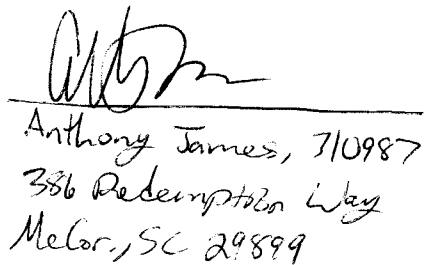 Anthony James, 310987
386 Redemption Way
McCor., SC 29899